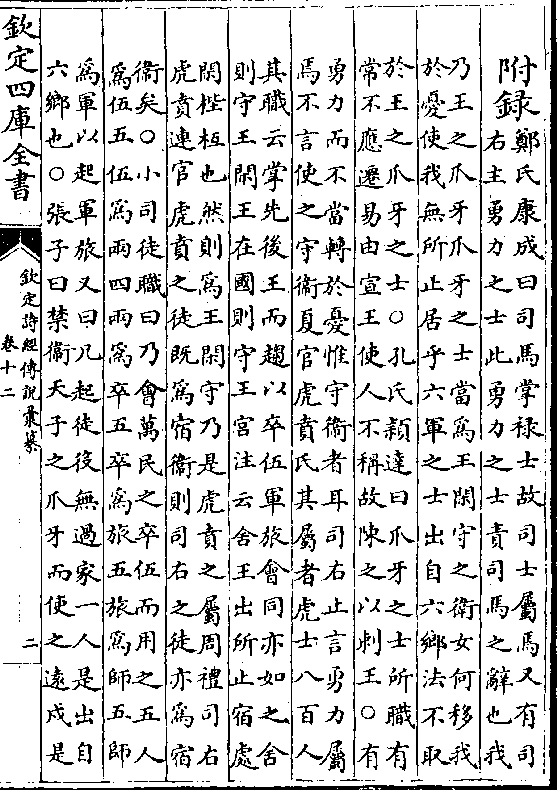 附録
鄭氏康成曰司馬掌禄士故司士屬焉又有司
右主勇力之士此勇力之士責司馬之辭也我
乃王之爪牙爪牙之士當爲王閑守之衛女何移我
於憂使我無所止居乎六軍之士出自六鄉法不取
於王之爪牙之士○孔氏穎達曰爪牙之士所職有
常不應遷易由宣王使人不稱故陳之以刺王○有
勇力而不當轉於憂惟守衛者耳司右止言勇力屬
焉不言使之守衛夏官虎賁氏其屬者虎士八百人
其職云掌先後王而趨以卒伍軍旅會同亦如之舍
則守王閑王在國則守王宮注云舍王出所止宿處
閑梐枑也然則爲王閑守乃是虎賁之屬周禮司右
虎賁連官虎賁之徒既爲宿衛則司右之徒亦爲宿
衛矣○小司徒職曰乃會萬民之卒伍而用之五人
爲伍五伍爲兩四兩爲卒五卒爲旅五旅爲師五師
爲軍以起軍旅又曰凡起徒役無過家一人是出自
六鄉也○張子曰禁衛天子之爪牙而使之遠戍是
欽定四庫全書
欽定詩經傳說彙纂
卷十二
二